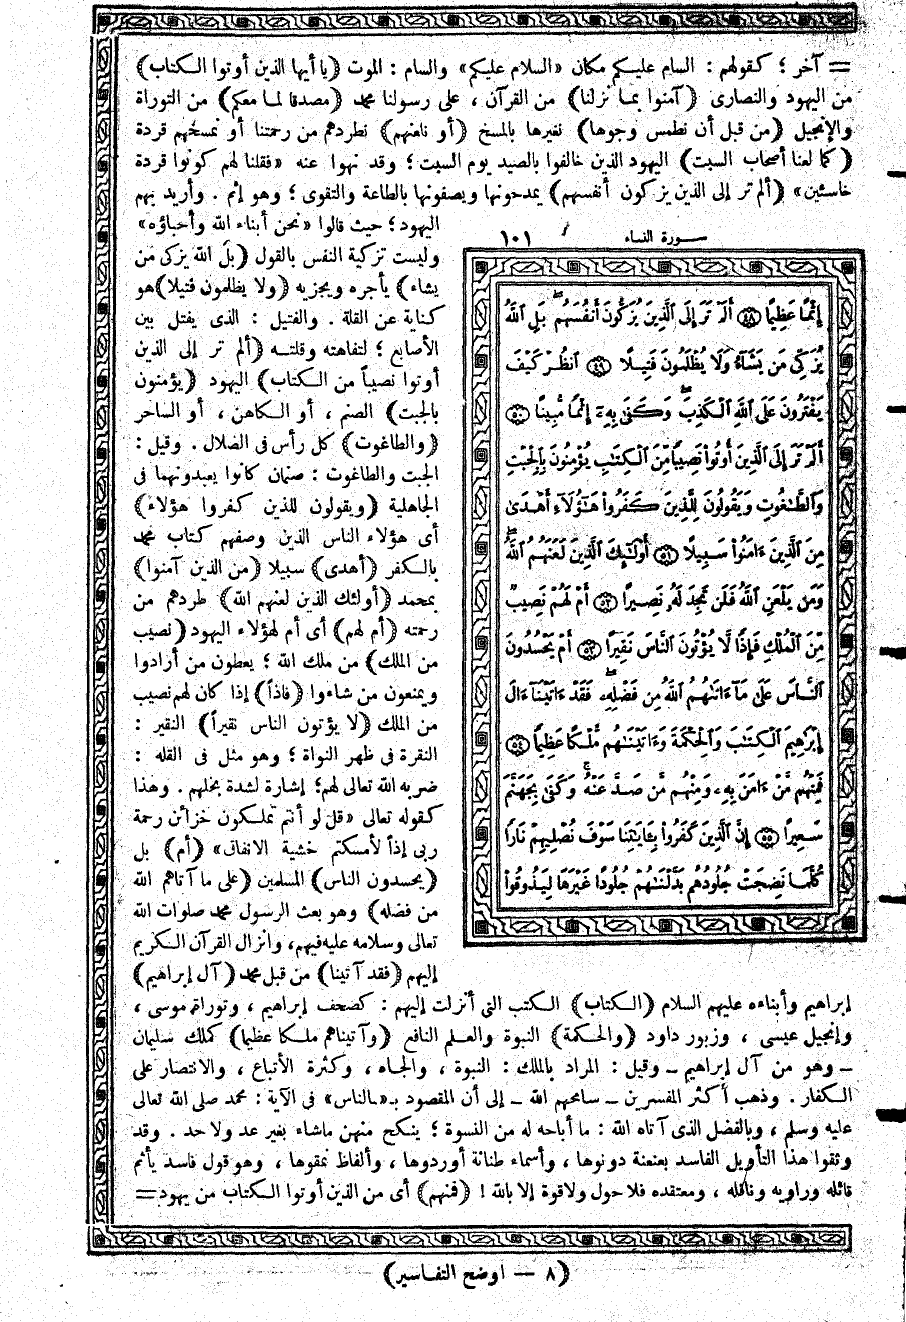 = آخر ؛ كقولهم : السام عليكم مكان «السلام عليكم» والسام : الموت (يا أيها الذين أوتوا الكتاب)
من اليهود والنصارى (آمنوا بما نزلنا) من القرآن ، على رسولنا محمد (مصدقا لما معكم) من التوراة
والإنجيل (من قبل أن نطمس وجوها) نغيرها بالمسخ (أو نلعنهم) نطردهم من رحمتنا أو نمسخهم قردة
(كما لعنا أصحاب السبت) اليهود الذين خالفوا بالصيد يوم السبت ؛ وقد نهوا عنه «فقلنا لهم كونوا قردة
خاسئين» (ألم تر إلى الذين يزكون أنفسهم) يمدحونها ويصفونها بالطاعة والتقوى ؛ وهو إثم . وأريد بهم
اليهود ؛ حيث قالوا «نحن أبناء الله وأحباؤه»
وليست تزكية النفس بالقول (بل الله يزكى من
يشاء) يأجره ويجزيه (ولا يظلمون فتيلا) هو
كناية عن القلة . والفتيل : الذى يفتل بين
الأصابع ؛ لتفاهته وقلته (ألم تر إلى الذين
أوتوا نصيباً من الكتاب) اليهود (يؤمنون
بالجبت) الصنم ، أو الكاهن ، أو الساحر
(والطاغوت) كل رأس فى الضلال . وقيل :
الجبت والطاغوت : صنمان كانوا يعبدونهما فى
الجاهلية (ويقولون للذين كفروا هؤلاء)
أى هؤلاء الناس الذين وصفهم كتاب محمد
بالكفر (أهدى) سبيلا (من الذين آمنوا)
بمحمد (أولئك الذين لعنهم الله) طردهم من
رحمته (أم لهم) أى أم لهؤلاء اليهود (نصيب
من الملك) من ملك الله ؛ يعطون من أرادوا
ويمنعون من شاءوا (فإذاً) إذا كان لهم نصيب
من الملك (لا يؤتون الناس نقيراً) النقير :
النقرة فى ظهر النواة ؛ وهو مثل فى القله :
ضربه الله تعالى لهم ؛ إشارة لشدة بخلهم . وهذا
كقوله تعالى «قل لو أنتم تملكون خزائن رحمة
ربى إذاً لأمسكتم خشية الانفاق» (أم) بل
(يحسدون الناس) المسلمين (على ما آتاهم الله
من فضله) وهو بعث الرسول محمد صلوات الله
تعالى وسلامه عليه فيهم، وانزال القرآن الكريم
إليهم (فقد آتينا) من قبل محمد (آل إبراهيم)
سورة النساء ١٠١
إِثْمًا عَظِيمًا ٤٨ أَلَمْ تَرَ إِلَى ٱلَّذِينَ يُزَكُّونَ أَنفُسَهُم بَلِ ٱللَّهُ
يُزَكِّى مَن يَشَآءُ وَلَا يُظْلَمُونَ فَتِيلًا ٤٩ ٱنظُرْ كَيْفَ
يَفْتَرُونَ عَلَى ٱللَّهِ ٱلْكَذِبَ وَكَفَىٰ بِهِۦٓ إِثْمًا مُّبِينًا ٥٠
أَلَمْ تَرَ إِلَى ٱلَّذِينَ أُوتُوا۟ نَصِيبًا مِّنَ ٱلْكِتَٰبِ يُؤْمِنُونَ بِٱلْجِبْتِ
وَٱلطَّٰغُوتِ وَيَقُولُونَ لِلَّذِينَ كَفَرُوا۟ هَٰٓؤُلَآءِ أَهْدَىٰ
مِنَ ٱلَّذِينَ ءَامَنُوا۟ سَبِيلًا ٥١ أُو۟لَٰٓئِكَ ٱلَّذِينَ لَعَنَهُمُ ٱللَّهُ
وَمَن يَلْعَنِ ٱللَّهُ فَلَن تَجِدَ لَهُۥ نَصِيرًا ٥٢ أَمْ لَهُمْ نَصِيبٌ
مِّنَ ٱلْمُلْكِ فَإِذًا لَّا يُؤْتُونَ ٱلنَّاسَ نَقِيرًا ٥٣ أَمْ يَحْسُدُونَ
ٱلنَّاسَ عَلَىٰ مَآ ءَاتَىٰهُمُ ٱللَّهُ مِن فَضْلِهِۦ فَقَدْ ءَاتَيْنَآ ءَالَ
إِبْرَٰهِيمَ ٱلْكِتَٰبَ وَٱلْحِكْمَةَ وَءَاتَيْنَٰهُم مُّلْكًا عَظِيمًا ٥٤
فَمِنْهُم مَّنْ ءَامَنَ بِهِۦ وَمِنْهُم مَّن صَدَّ عَنْهُ وَكَفَىٰ بِجَهَنَّمَ
سَعِيرًا ٥٥ إِنَّ ٱلَّذِينَ كَفَرُوا۟ بِـَٔايَٰتِنَا سَوْفَ نُصْلِيهِمْ نَارًا
كُلَّمَا نَضِجَتْ جُلُودُهُم بَدَّلْنَٰهُمْ جُلُودًا غَيْرَهَا لِيَذُوقُوا۟
إبراهيم وأبناءه عليهم السلام (الكتاب) الكتب التى أنزلت إليهم : كصحف إبراهيم ، وتوراة موسى ،
وإنجيل عيسى ، وزبور داود (والحكمة) النبوة والعلم النافع (وآتيناهم ملكا عظيما) كملك سليمان
- وهو من آل إبراهيم - وقيل : المراد بالملك : النبوة ، والجاه ، وكثرة الأتباع ، والانتصار على
الكفار . وذهب أكثر المفسرين - سامحهم الله - إلى أن المقصود بـ «الناس» فى الآية : محمد صلى الله تعالى
عليه وسلم ، وبالفضل الذى آتاه الله : ما أباحه له من النسوة ؛ ينكح منهن ماشاء بغير عد ولا حد . وقد
وثقوا هذا التأويل الفاسد بعنعنة دونوها ، وأسماء طنانة أوردوها ، وألفاظ نمقوها ، وهو قول فاسد يأثم
قائله وراويه وناقله ، ومعتقده فلا حول ولا قوة إلا بالله ! (فمنهم) أى من الذين أوتوا الكتاب من يهود =
(٨ - اوضح التفاسير)